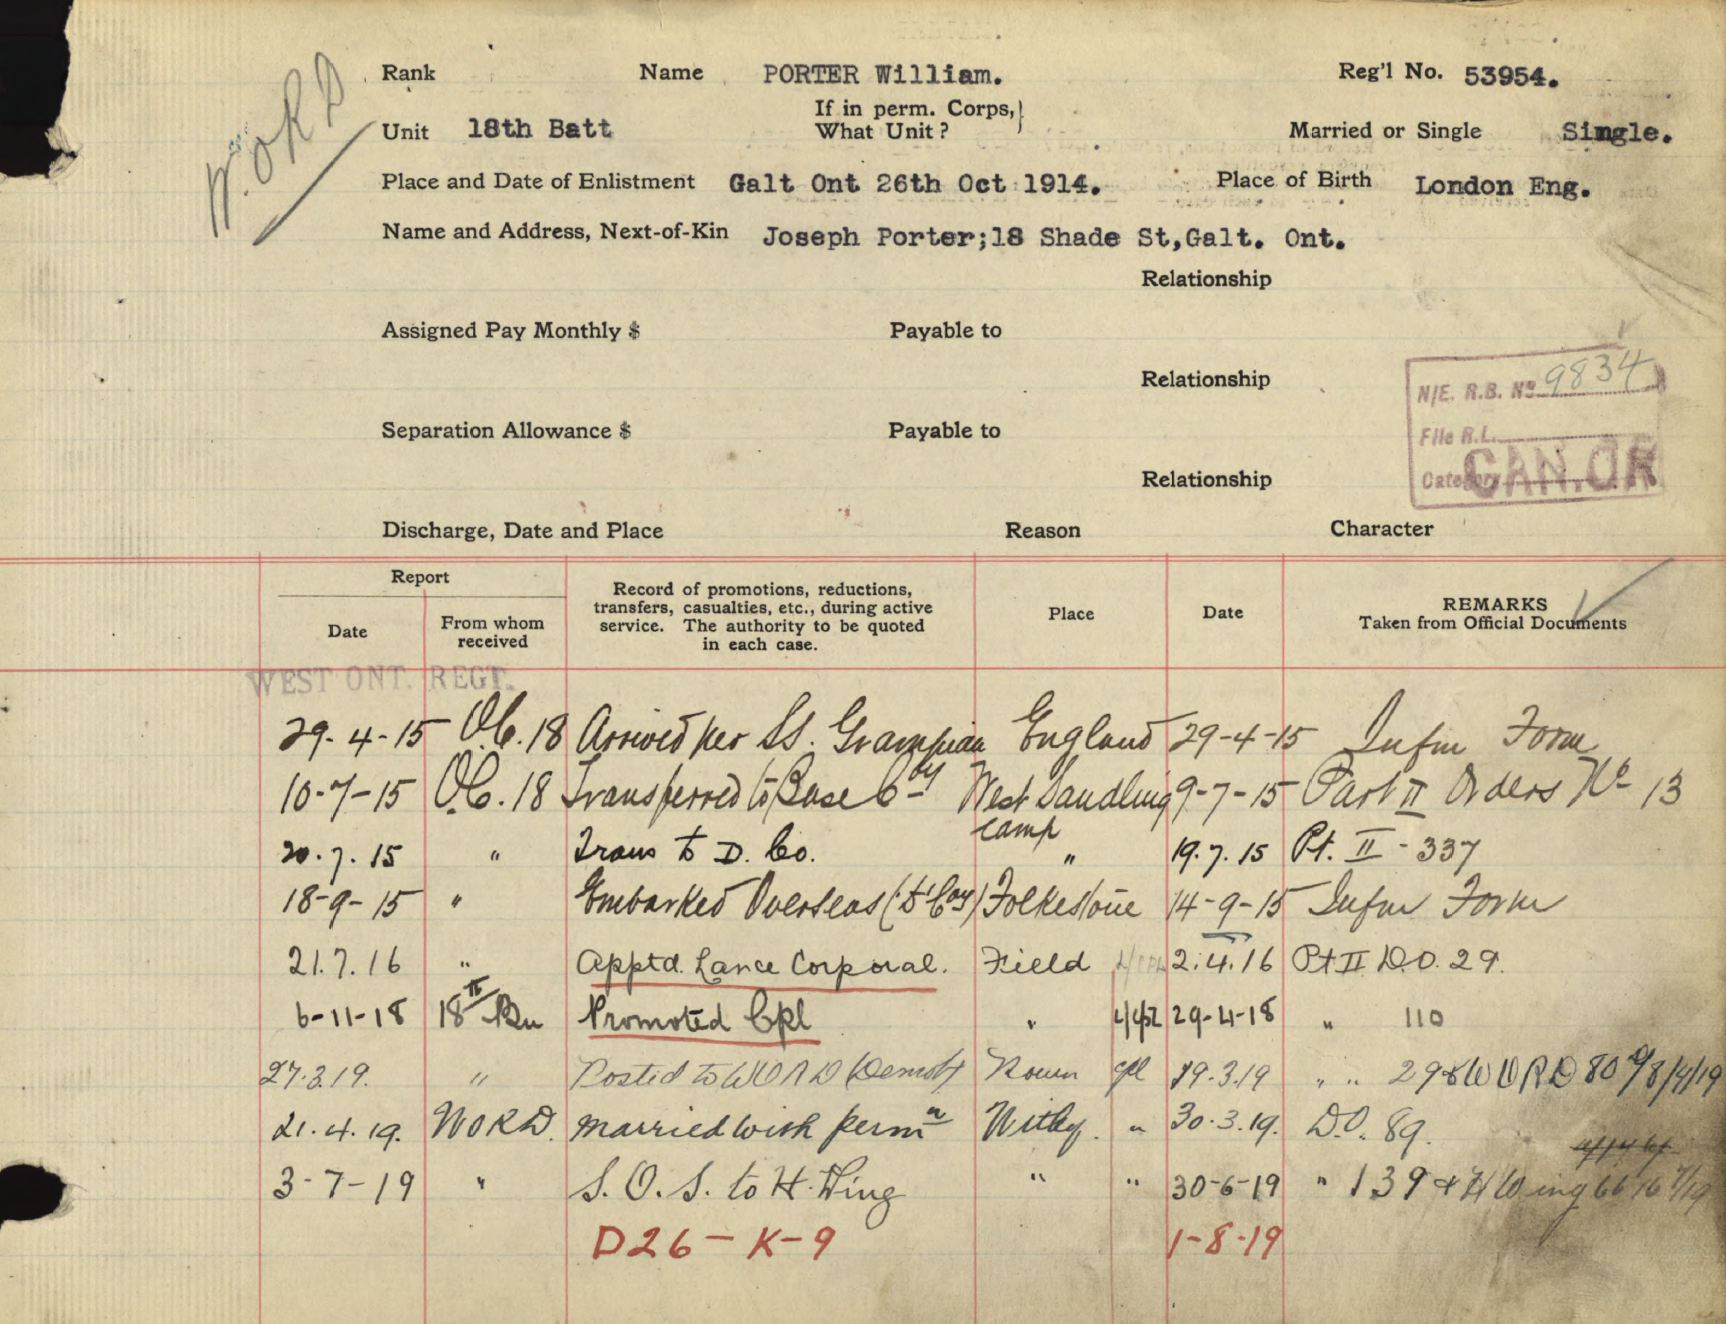 W.O.R.D
Rank Name PORTER William. Reg'l No. 53954.
Unit 18th Batt If in perm. Corps, What Unit? Married or Single Single.
Place and Date of Enlistment Galt Ont 26th Oct 1914. Place of Birth London Eng.
Name and Address, Next-of-Kin Joseph Porter;18 Shade St,Galt. Ont.
Relationship
Assigned Pay Monthly $ Payable to
Relationship
N/E. R.B. No 9834
File R.L.
Separation Allowance $ Payable to
Category CAN.OR
Relationship
Discharge, Date and Place Reason Character
Report
Date From whom received
Record of promotions, reductions, transfers, casualties, etc., during active service. The authority to be quoted in each case.
Place Date
REMARKS
Taken from Official Documents
WEST ONT. REGT.
29-4-15 O.C. 18 Arrived per SS. Grampian England 29-4-15 Infm Form
10-7-15 O.C. 18 Transferred to Base Coy West Sandling camp 9-7-15 Part II Orders No 13
20.7.15 " Trans to D. Co. " 19.7.15 Pt. II - 337
18-9-15 " Embarked Overseas (D Coy) Folkestone 14-9-15 Infm Form
21.7.16 " Apptd. Lance Corporal. Field 2.4.16 Pt II D.O. 29.
6-11-18 18th Bn Promoted Cpl " 29-4-18 " 110
27.3.19. " Posted to WORD (Demob) Rouen Cpl 19.3.19 " " 29 & WORD 80 8/4/19
21.4.19. WORD. Married with permn Witley. " 30.3.19. D.O. 89.
3-7-19 " S.O.S. to H. Wing " " 30-6-19 " 139 & H Wing 66
D26-K-9 1-8-19